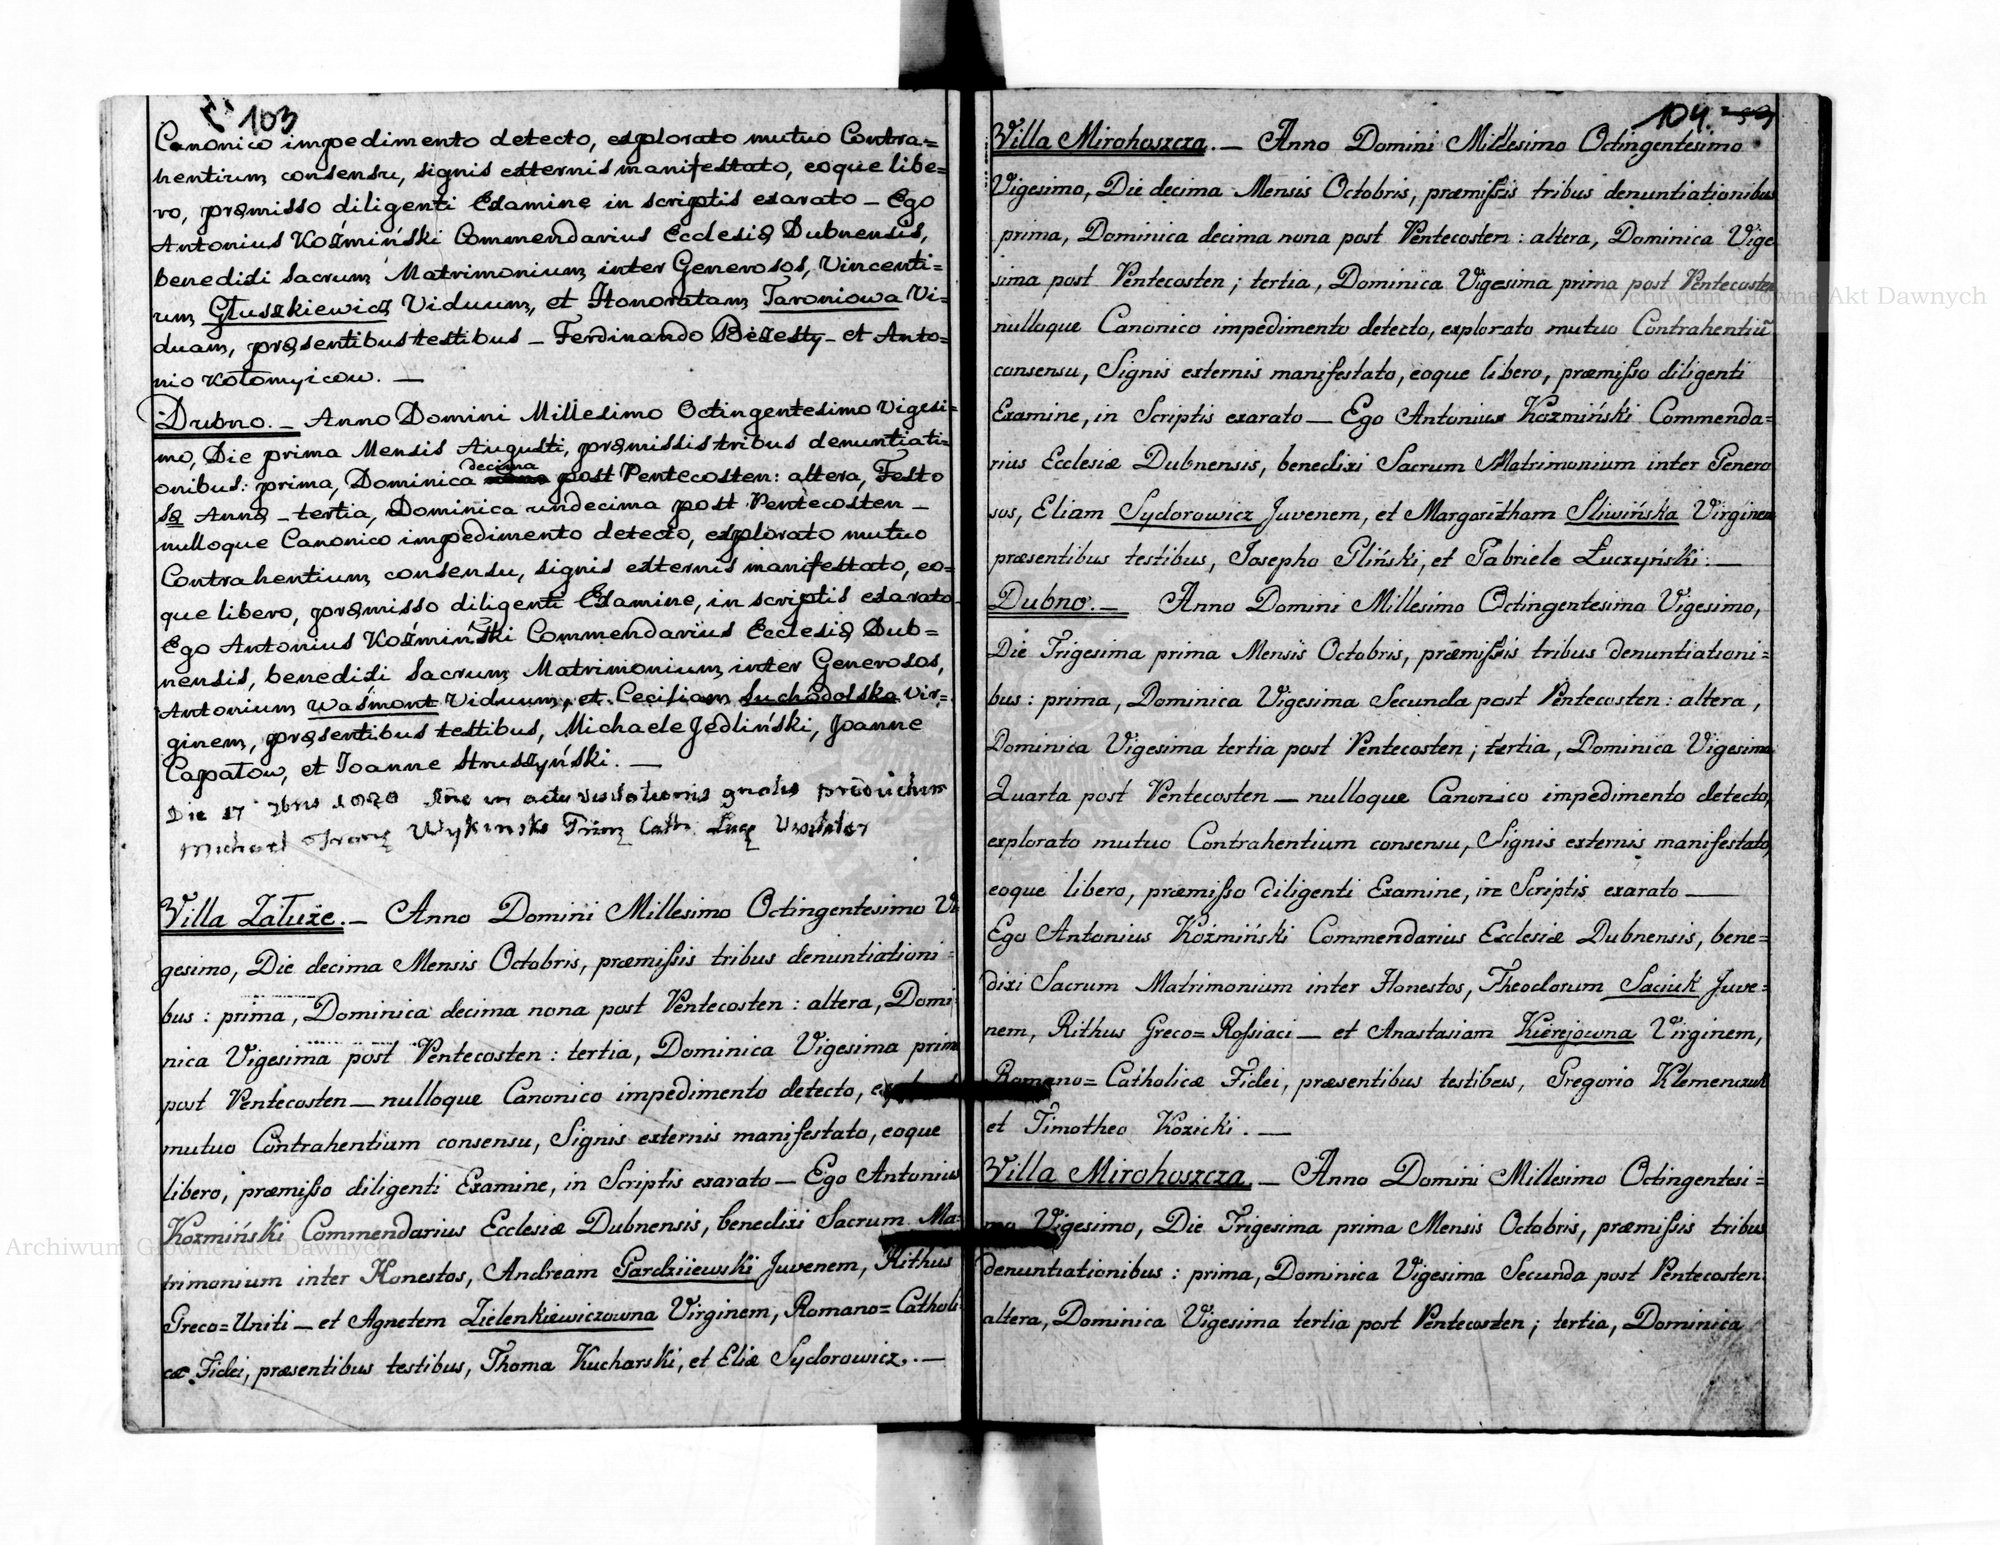 103
Canonico impedimento detecto, explorato mutuo Contra=
hentium consensu, signis externis manifestato, eoque libe=
ro, præmisso diligenti Examine in scriptis exarato — Ego
Antonius Koźmiński Commendarius Ecclesiæ Dubnensis,
benedixi Sacrum Matrimonium inter Generosos, Vincenti=
um Głuszkiewicz Viduum, et Honoratam Taroniowa Vi=
duam, præsentibus testibus — Ferdinando Bezesty — et Anto=
nio Kołomyicow. —
Dubno. — Anno Domini Millesimo Octingentesimo Vigesi=
mo, Die prima Mensis Augusti, præmissis tribus denuntiati=
decima
onibus: prima, Dominica post Pentecosten: altera, Festo
Sæ Annæ — tertia, Dominica undecima post Pentecosten —
nulloque Canonico impedimento detecto, explorato mutuo
Contrahentium consensu, signis externis manifestato, eo=
que libero, præmisso diligenti Examine, in scriptis exarato
Ego Antonius Koźmiński Commendarius Ecclesiæ Dub=
nensis, benedixi Sacrum Matrimonium inter Generosos,
Antonium Waśmont Viduum, et Ceciliam Suchodolska Vir=
ginem, præsentibus testibus, Michaele Jedliński, Joanne
Capatow, et Joanne Struszyński. —
Die 17 7bris 1820 in actu visitationis gnalis
Michael Wykinski Cath. Luce Visitator
Villa Załuże. — Anno Domini Millesimo Octingentesimo Vi
gesimo, Die decima Mensis Octobris, præmissis tribus denuntiationi=
bus: prima, Dominica decima nona post Pentecosten: altera, Domi=
nica Vigesima post Pentecosten: tertia, Dominica Vigesima prima
post Pentecosten — nulloque Canonico impedimento detecto,
mutuo Contrahentium consensu, Signis externis manifestato, eoque
libero, præmisso diligenti Examine, in Scriptis exarato — Ego Antonius
Koźmiński Commendarius Ecclesiæ Dubnensis, benedixi Sacrum Ma=
trimonium inter Honestos, Andream Gardziiewski Juvenem, Rithus
Greco=Uniti — et Agnetem Zielenkiewiczowna Virginem, Romano=Catholi
cæ Fidei, præsentibus testibus, Thoma Kucharski, et Eliæ Sydorowicz. —
104
Villa Mirohoszcza. — Anno Domini Millesimo Octingentesimo
Vigesimo, Die decima Mensis Octobris, præmissis tribus denuntiationibus
prima, Dominica decima nona post Pentecosten: altera, Dominica Vige
sima post Pentecosten; tertia, Dominica Vigesima prima post Pentecosten
nulloque Canonico impedimento detecto, explorato mutuo Contrahentiū
consensu, Signis externis manifestato, eoque libero, præmisso diligenti
Examine, in Scriptis exarato — Ego Antonius Koźmiński Commenda=
rius Ecclesiæ Dubnensis, benedixi Sacrum Matrimonium inter Genero
sos, Eliam Sydorowicz Juvenem, et Margaritham Sliwińska Virginem
præsentibus testibus, Josepho Gliński, et Gabriele Łuczyński. —
Dubno. — Anno Domini Millesimo Octingentesimo Vigesimo,
Die Trigesima prima Mensis Octobris, præmissis tribus denuntiationi=
bus: prima, Dominica Vigesima Secunda post Pentecosten: altera,
Dominica Vigesima tertia post Pentecosten; tertia, Dominica Vigesima
Quarta post Pentecosten — nulloque Canonico impedimento detecto,
explorato mutuo Contrahentium consensu, Signis externis manifestato,
eoque libero, præmisso diligenti Examine, in Scriptis exarato —
Ego Antonius Koźmiński Commendarius Ecclesiæ Dubnensis, bene=
dixi Sacrum Matrimonium inter Honestos, Theodorum Saciuk Juve=
nem, Rithus Greco=Rossiaci — et Anastasiam Kierejowna Virginem,
Romano=Catholicæ Fidei, præsentibus testibus, Gregorio Klemenczuk
et Timotheo Kozicki. —
Villa Mirohoszcza. — Anno Domini Millesimo Octingentesi=
mo Vigesimo, Die Trigesima prima Mensis Octobris, præmissis tribus
denuntiationibus: prima, Dominica Vigesima Secunda post Pentecosten:
altera, Dominica Vigesima tertia post Pentecosten; tertia, Dominica
Archiwum Główne Akt Dawnych
Archiwum Główne Akt Dawnych